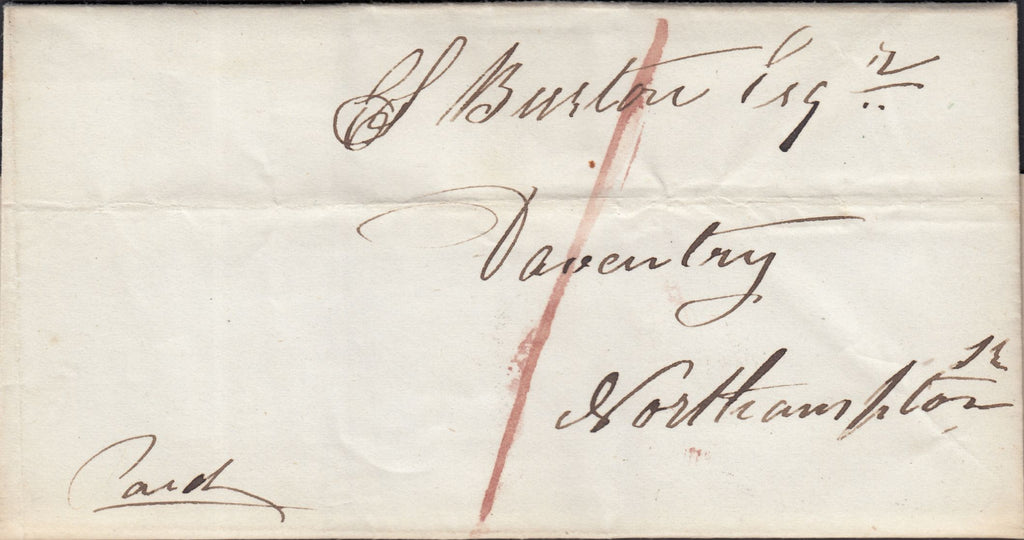 E S Burton Esqr
Daventry
Northamptonsh
Paid